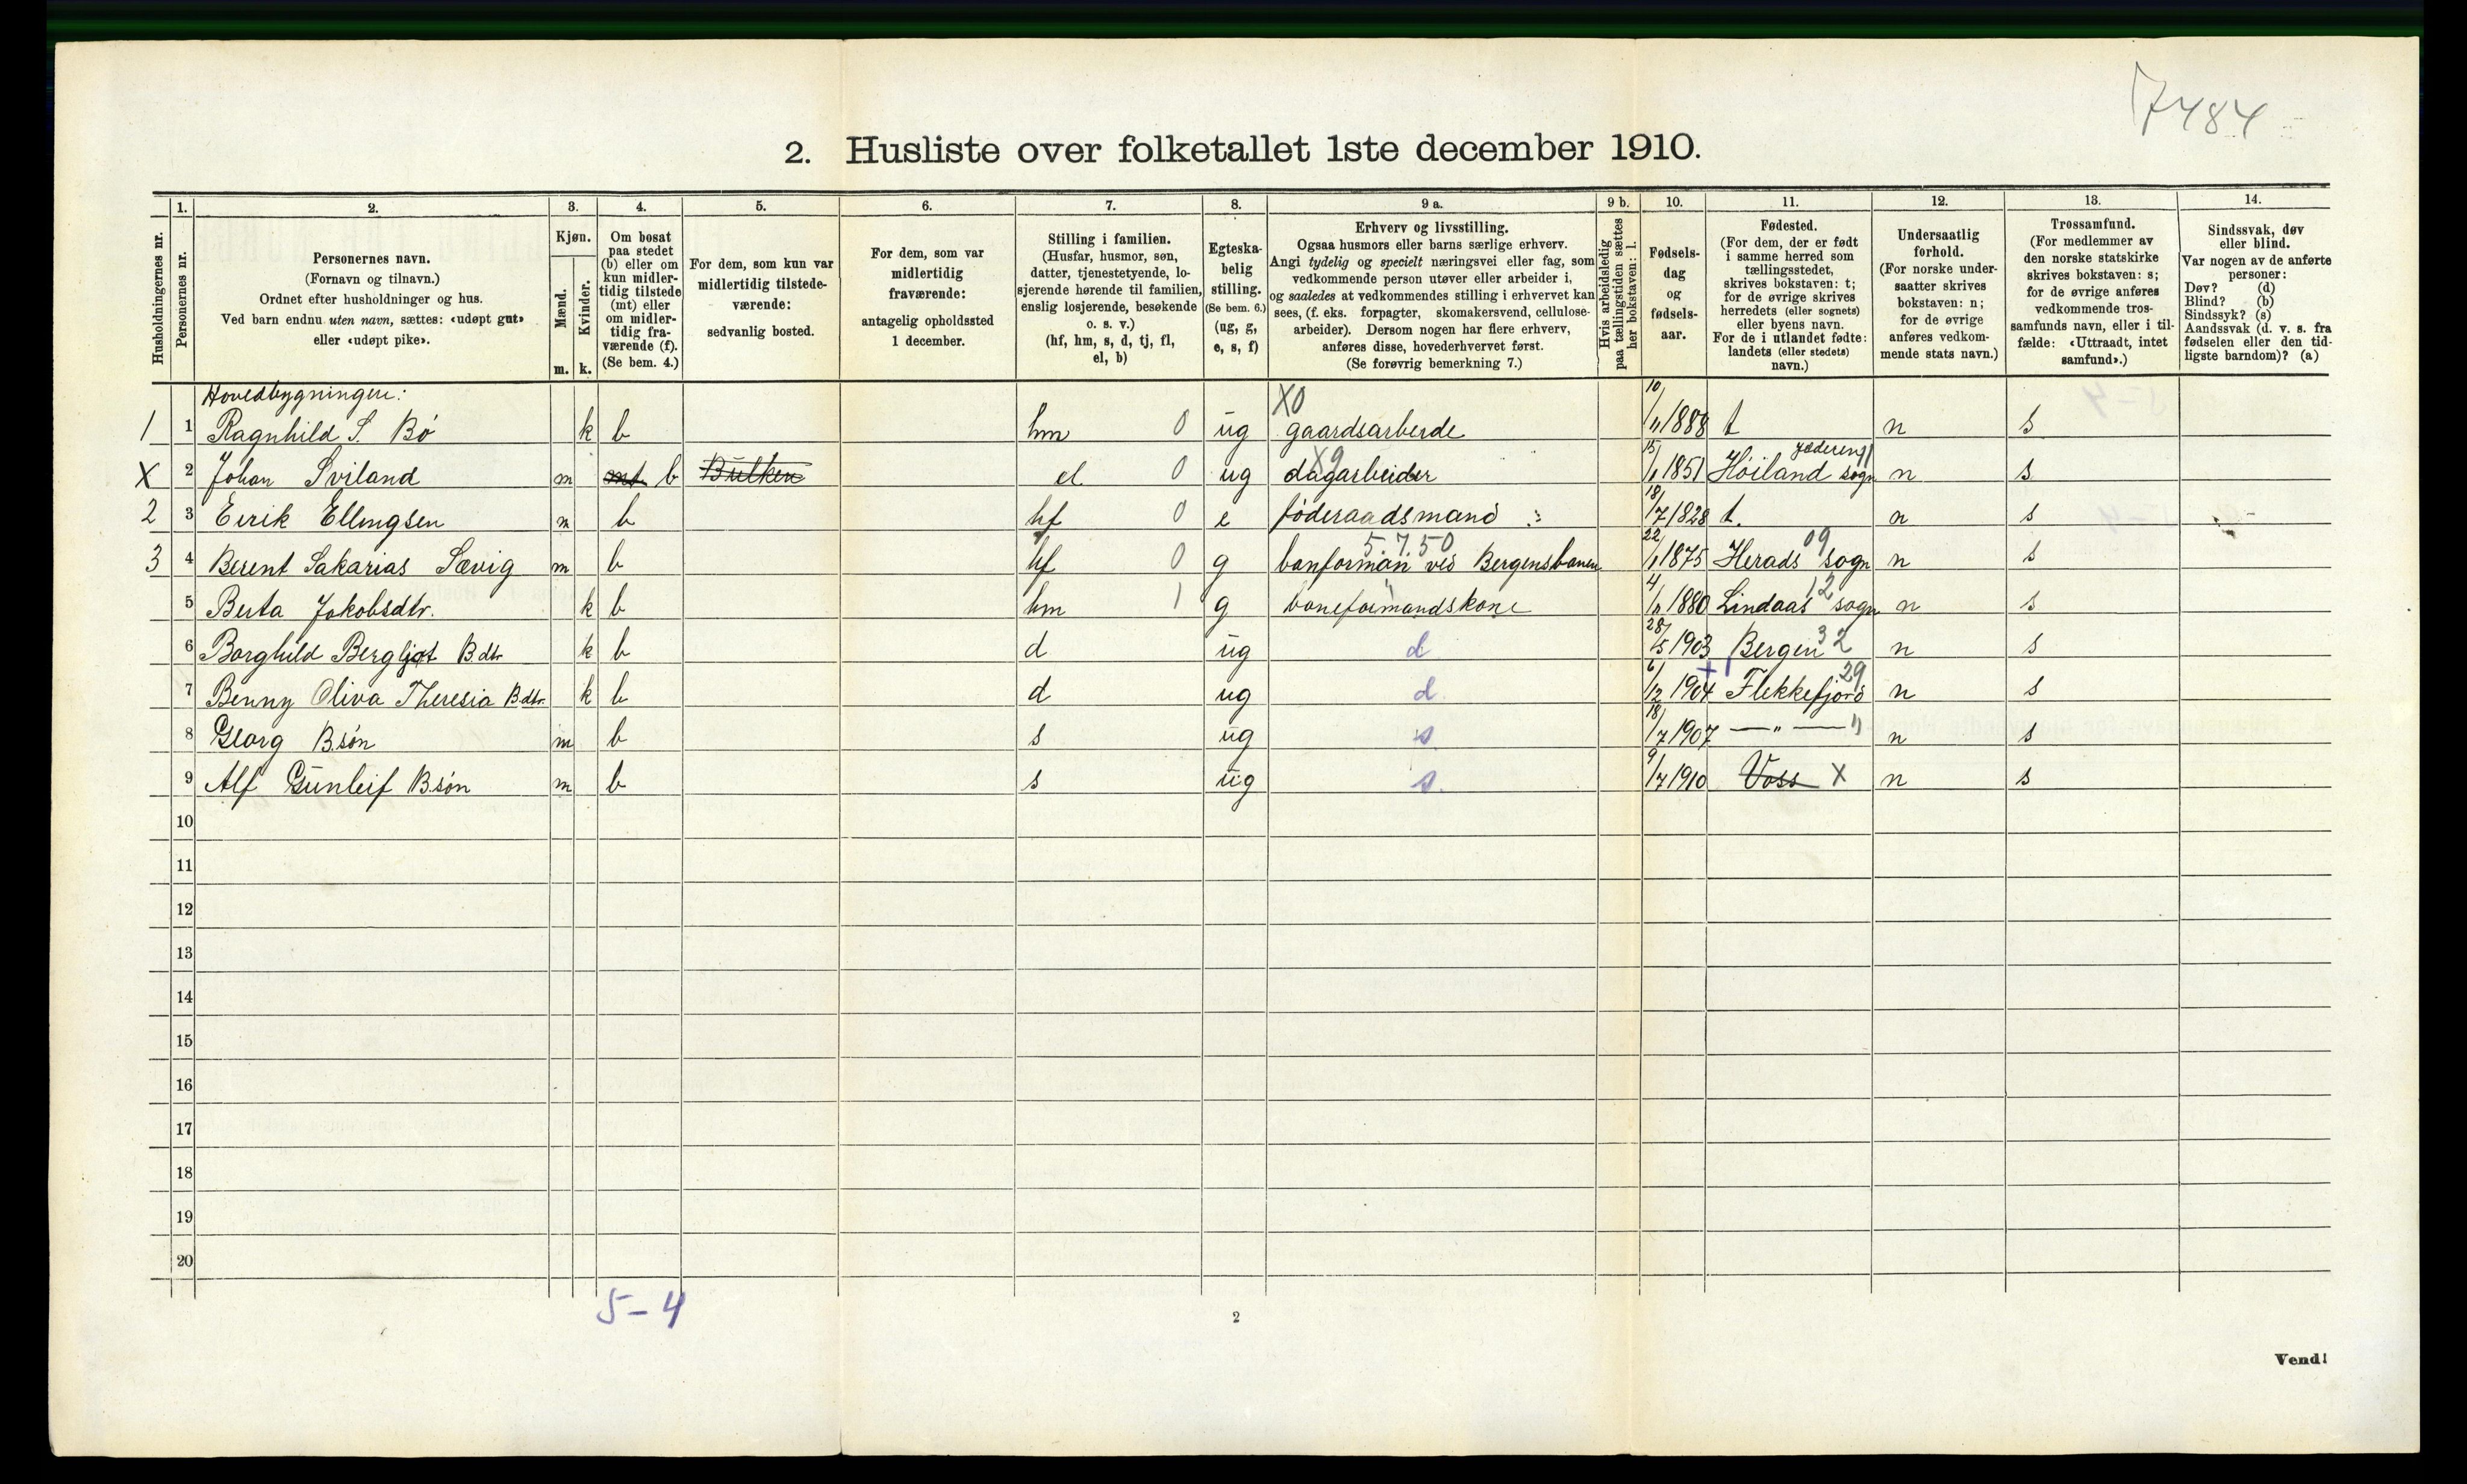 7484
2. Husliste over folketallet 1ste december 1910.
Husholdningernes nr.
1. Personernes nr.
2. Personernes navn.
(Fornavn og tilnavn.)
Ordnet efter husholdninger og hus.
Ved barn endnu uten navn, sættes: «udøpt gut»
eller «udøpt pike».
3. Kjøn.
Mænd. m.
Kvinder. k.
4. Om bosat
paa stedet
(b) eller om
kun midler-
tidig tilstede
(mt) eller
om midler-
tidig fra-
værende (f).
(Se bem. 4.)
5. For dem, som kun var
midlertidig tilstede-
værende:
sedvanlig bosted.
6. For dem, som var
midlertidig
fraværende:
antagelig opholdssted
1 december.
7. Stilling i familien.
(Husfar, husmor, søn,
datter, tjenestetyende, lo-
sjerende hørende til familien,
enslig losjerende, besøkende
o. s. v.)
(hf, hm, s, d, tj, fl,
el, b)
8. Egteska-
belig
stilling.
(Se bem. 6.)
(ug, g,
e, s, f)
9 a. Erhverv og livsstilling.
Ogsaa husmors eller barns særlige erhverv.
Angi tydelig og specielt næringsvei eller fag, som
vedkommende person utøver eller arbeider i,
og saaledes at vedkommendes stilling i erhvervet kan
sees, (f. eks. forpagter, skomakersvend, cellulose-
arbeider). Dersom nogen har flere erhverv,
anføres disse, hovederhvervet først.
(Se forøvrig bemerkning 7.)
9 b. Hvis arbeidsledig
paa tællingstiden sættes
her bokstaven: l.
10. Fødsels-
dag
og
fødsels-
aar.
11. Fødested.
(For dem, der er født
i samme herred som
tællingsstedet,
skrives bokstaven: t;
for de øvrige skrives
herredets (eller sognets)
eller byens navn.
For de i utlandet fødte:
landets (eller stedets)
navn.)
12. Undersaatlig
forhold.
(For norske under-
saatter skrives
bokstaven: n;
for de øvrige
anføres vedkom-
mende stats navn.)
13. Trossamfund.
(For medlemmer av
den norske statskirke
skrives bokstaven: s;
for de øvrige anføres
vedkommende tros-
samfunds navn, eller i til-
fælde: «Uttraadt, intet
samfund».)
14. Sindssvak, døv
eller blind.
Var nogen av de anførte
personer:
Døv? (d)
Blind? (b)
Sindssyk? (s)
Aandssvak (d. v. s. fra
fødselen eller den tid-
ligste barndom)? (a)
Hovedbygningen: X0
1 1 Ragnhild S. Bø k b hm 0 ug gaardsarberde 10/11 1888 t n s
X9 Jæderen
X 2 Johan Sviland m mt b Bulken el 0 ug dagarbeider 15/1 1851 Høiland sogn n s
2 3 Eirik Ellingsen m b hf 0 e føderaadsmand 18/7 1828 t. n s
5.7.50 09
3 4 Berent Sakarias Sævig m b hf 0 g banforman ved Bergensbanen 22/1 1875 Herads sogn n s
5 Berta Jakobsdtr. k b hm 1 g baneformandskone 4/11 1880 Lindaas 12 sogn n s
6 Borghild Bergljot B.dtr k b d ug d 28/5 1903 Bergen 32 n s
7 Benny Oliva Theresia B.dtr. k b d ug d. 6/12 1904 +1 Flekkefjord 29 n s
8 Georg B.søn m b s ug s. 18/7 1907 — " — n s
9 Alf Gunleif B.søn m b s ug s. 9/7 1910 Voss X n s
10
11
12
13
14
15
16
17
18
19
20
5-4
2
Vend!